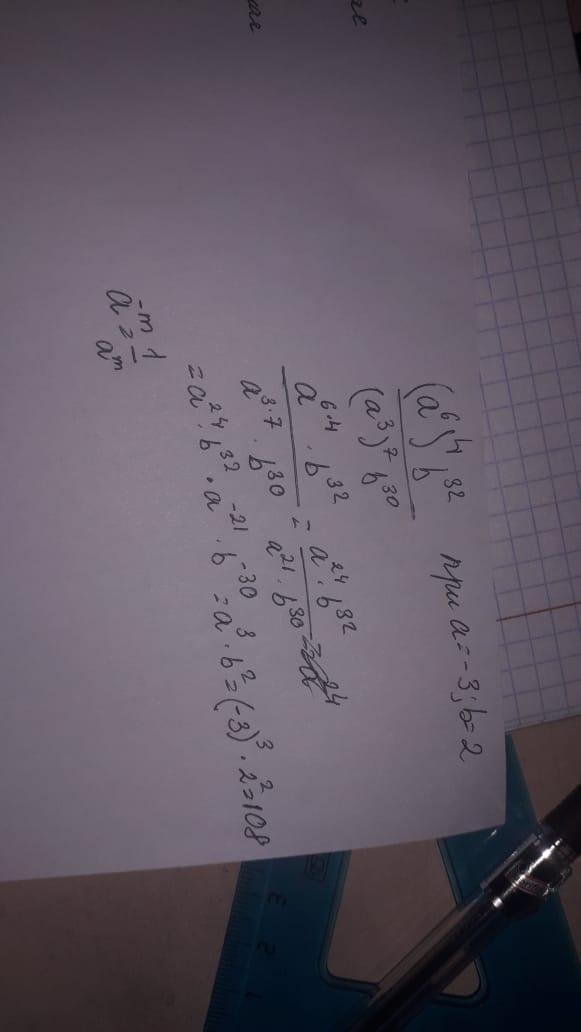 (a⁶)⁴ b³² / (a³)⁷ b³⁰ при a = -3; b = 2
a⁶·⁴ · b³² / a³·⁷ · b³⁰ = a²⁴ · b³² / a²¹ · b³⁰ =
= a²⁴ · b³² · a⁻²¹ · b⁻³⁰ = a³ · b² = (-3)³ · 2² = 108
a⁻ᵐ = 1 / aᵐ
3 2 1